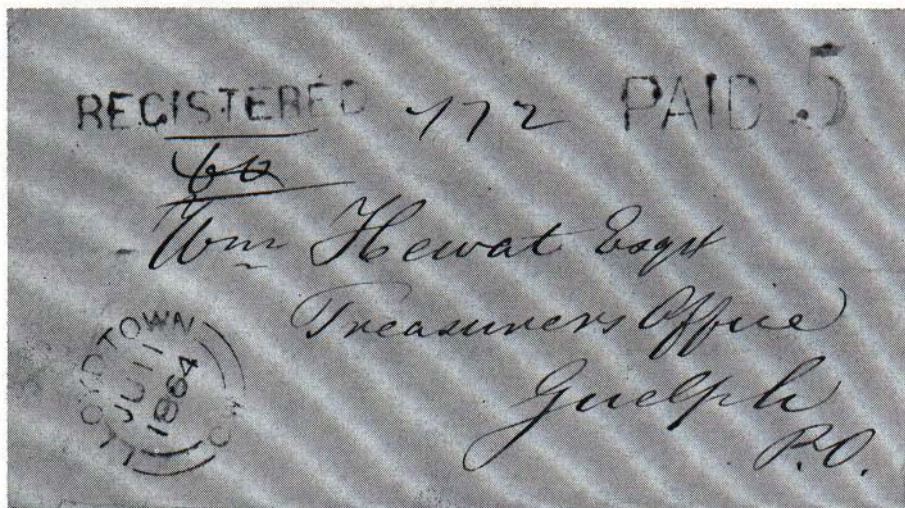 REGISTERED 772 PAID 5
60
Wm Hewat Esqr
Treasurers Office
Guelph
P.O.
LLOYDTOWN
JU 11
1864
C.W